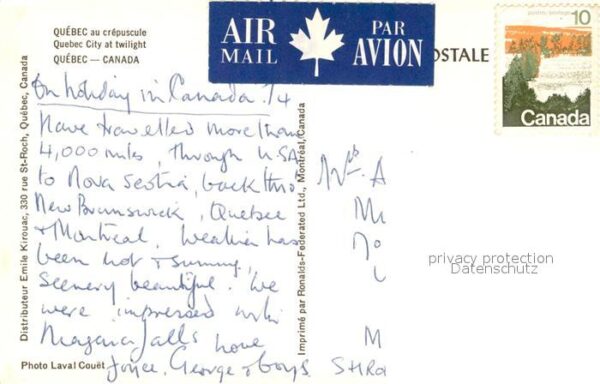 QUÉBEC au crépuscule
Quebec City at twilight
QUÉBEC — CANADA
AIR MAIL
PAR AVION
OSTALE
postes postage
10
Canada
On holiday in Canada
Have travelled more than
4,000 miles, through USA
to Nova Scotia, back thro
New Brunswick, Quebec
& Montreal. Weather has
been hot & sunny,
Scenery beautiful. We
were impressed with
Niagara Falls love
Joyce, George & boys
Photo Laval Couët
Distributeur Emile Kirouac, 330 rue St-Roch, Québec, Canada
Imprimé par Ronalds-Federated Ltd., Montréal, Canada
privacy protection
Datenschutz